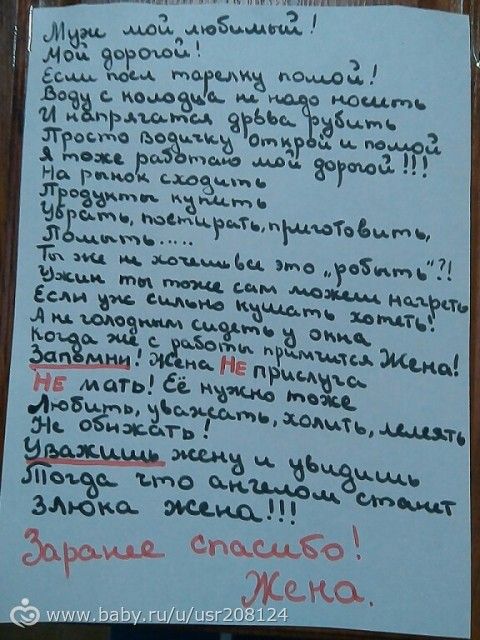 Муж мой любимый!
Мой дорогой!
Если поел тарелку помой!
Воду с колодца не надо носить
И напрягатся дрова рубить
Просто водичку открой и помой
Я тоже работаю мой дорогой!!!
На рынок сходить
Продукты купить
Убрать, постирать, приготовить,
Помыть.....
Ты же не хочешь все это „робыть"?!
Ужин ты тоже сам можеш нагреть
Если уж сильно кушать хотеть!
А не голодным сидеть у окна
Когда же с работы примчится Жена!
Запомни! Жена НЕ прислуга
НЕ мать! Её нужно тоже
Любить, уважать, холить, лелеять
Не обижать!
Уважишь жену и увидишь
Тогда что ангелом станет
Злюка жена!!!
Заранее спасибо!
Жена.
www.baby.ru/u/usr208124